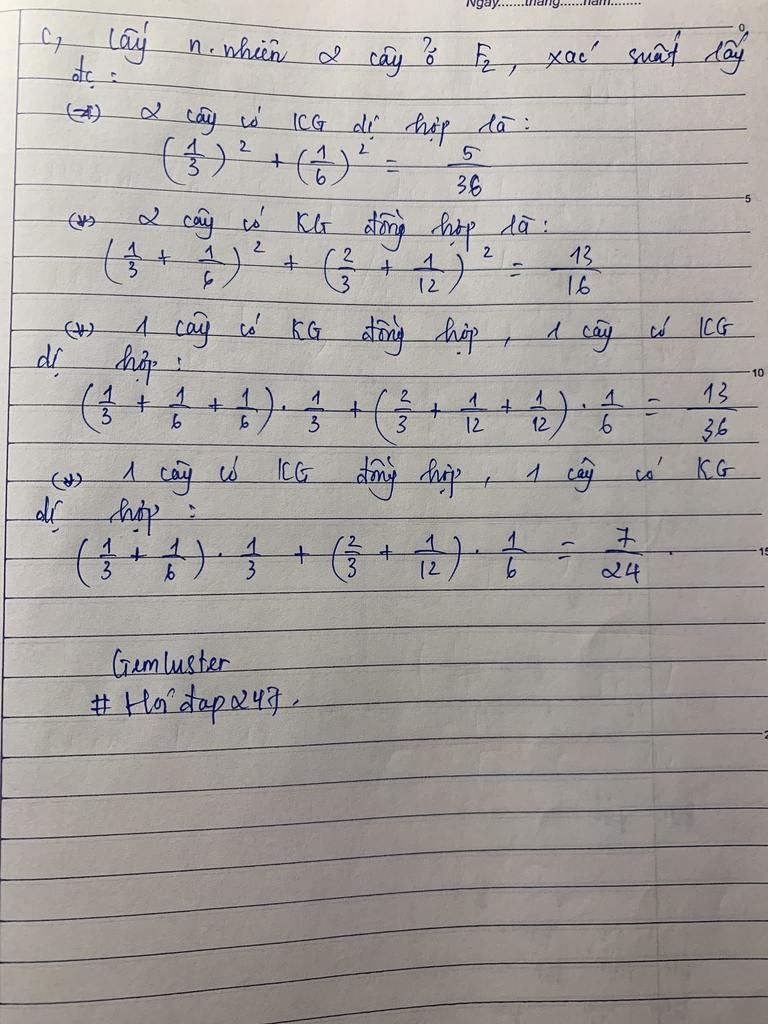 Ngày.......tháng......năm........
c, Lấy n.nhiên 2 cây ở F2, xác suất lấy
đc :
(*) 2 cây có KG dị hợp là :
(1/3)^2 + (1/6)^2 = 5/36
(*) 2 cây có KG đồng hợp là :
(1/3 + 1/6)^2 + (2/3 + 1/12)^2 = 13/16
(*) 1 cây có KG đồng hợp, 1 cây có KG
dị hợp :
(1/3 + 1/6 + 1/6) . 1/3 + (2/3 + 1/12 + 1/12) . 1/6 = 13/36
(*) 1 cây có KG đồng hợp, 1 cây có KG
dị hợp :
(1/3 + 1/6) . 1/3 + (2/3 + 1/12) . 1/6 = 7/24 .
Gemluster
# Hoidap247.
0
5
10
15
2